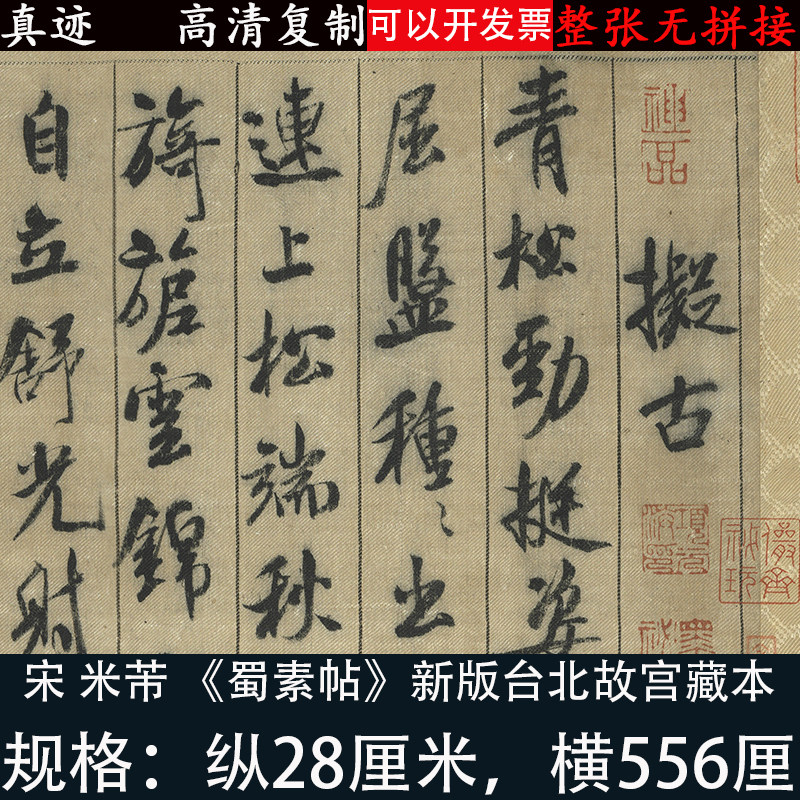 真迹 高清复制 可以开发票 整张无拼接
神品
擬古
青松勁挺姿
屈盤種〻出
連上松端秋
旖旎雲錦
自立舒光射
宋 米芾 《蜀素帖》新版台北故宫藏本
规格：纵28厘米，横556厘